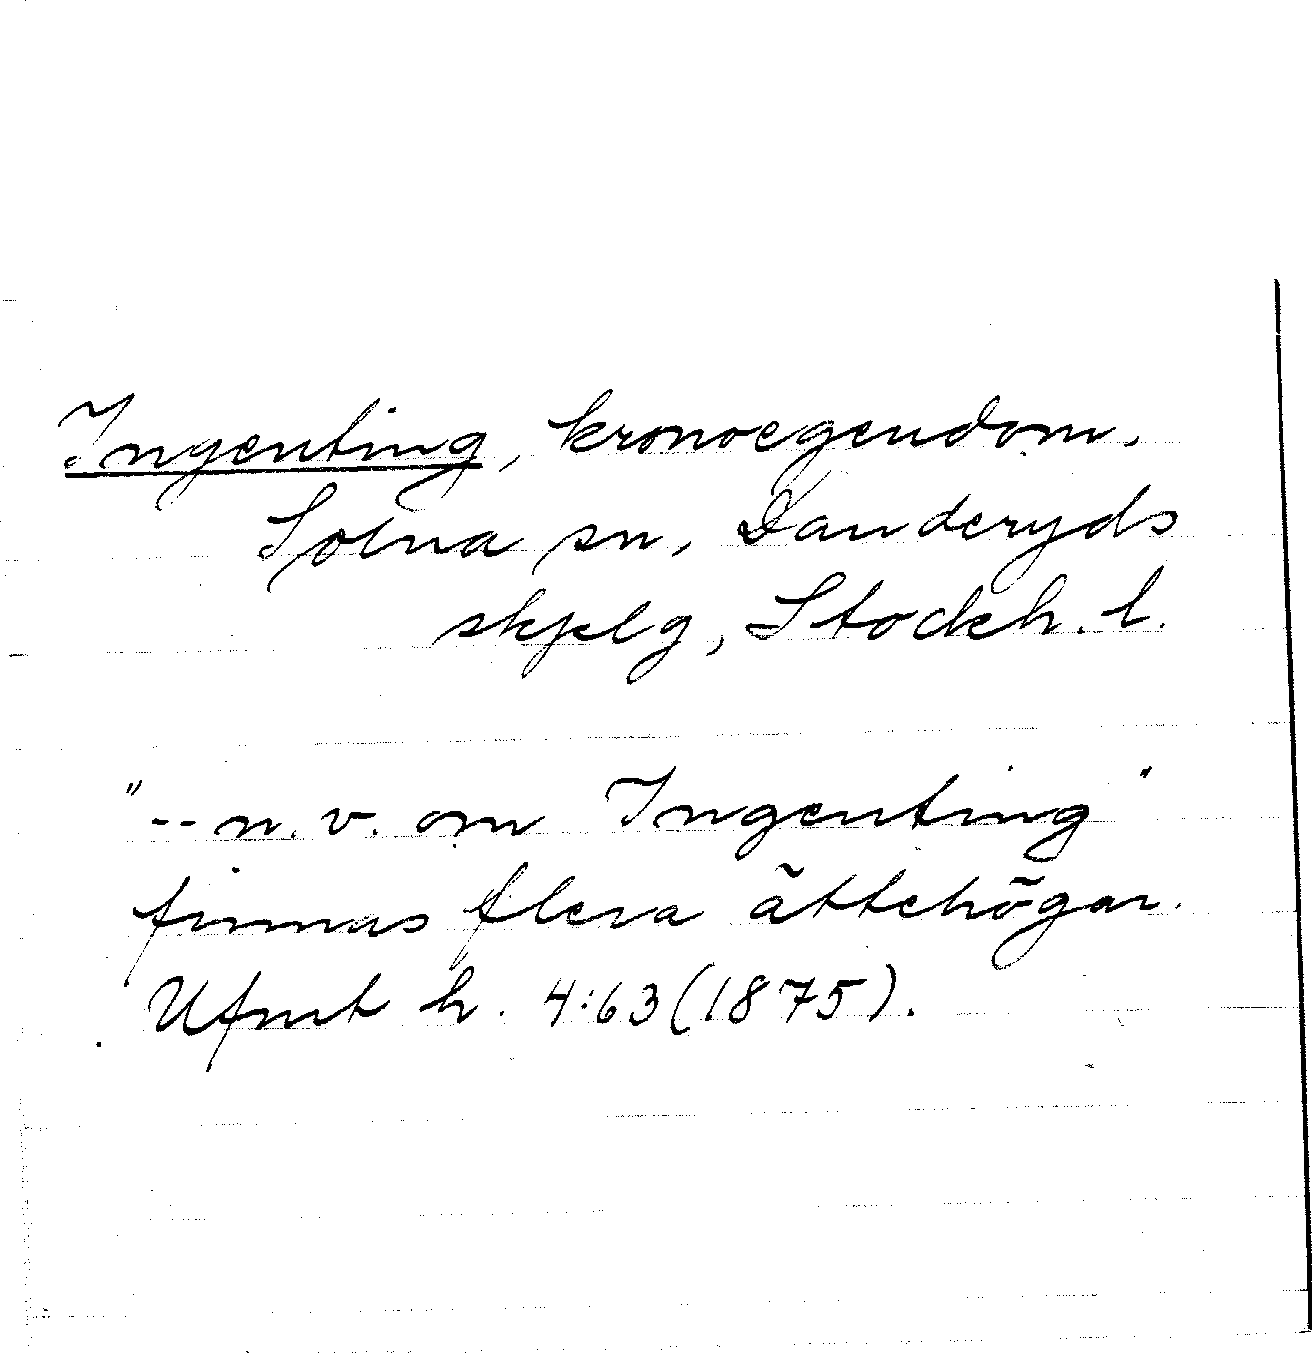 Ingenting, kronoegendom.
Solna sn, Danderyds
skjelg, Stockh. l.
"-- n. v. om Ingenting"
finnas flera ättehögar.
Ufmt h. 4:63 (1875).